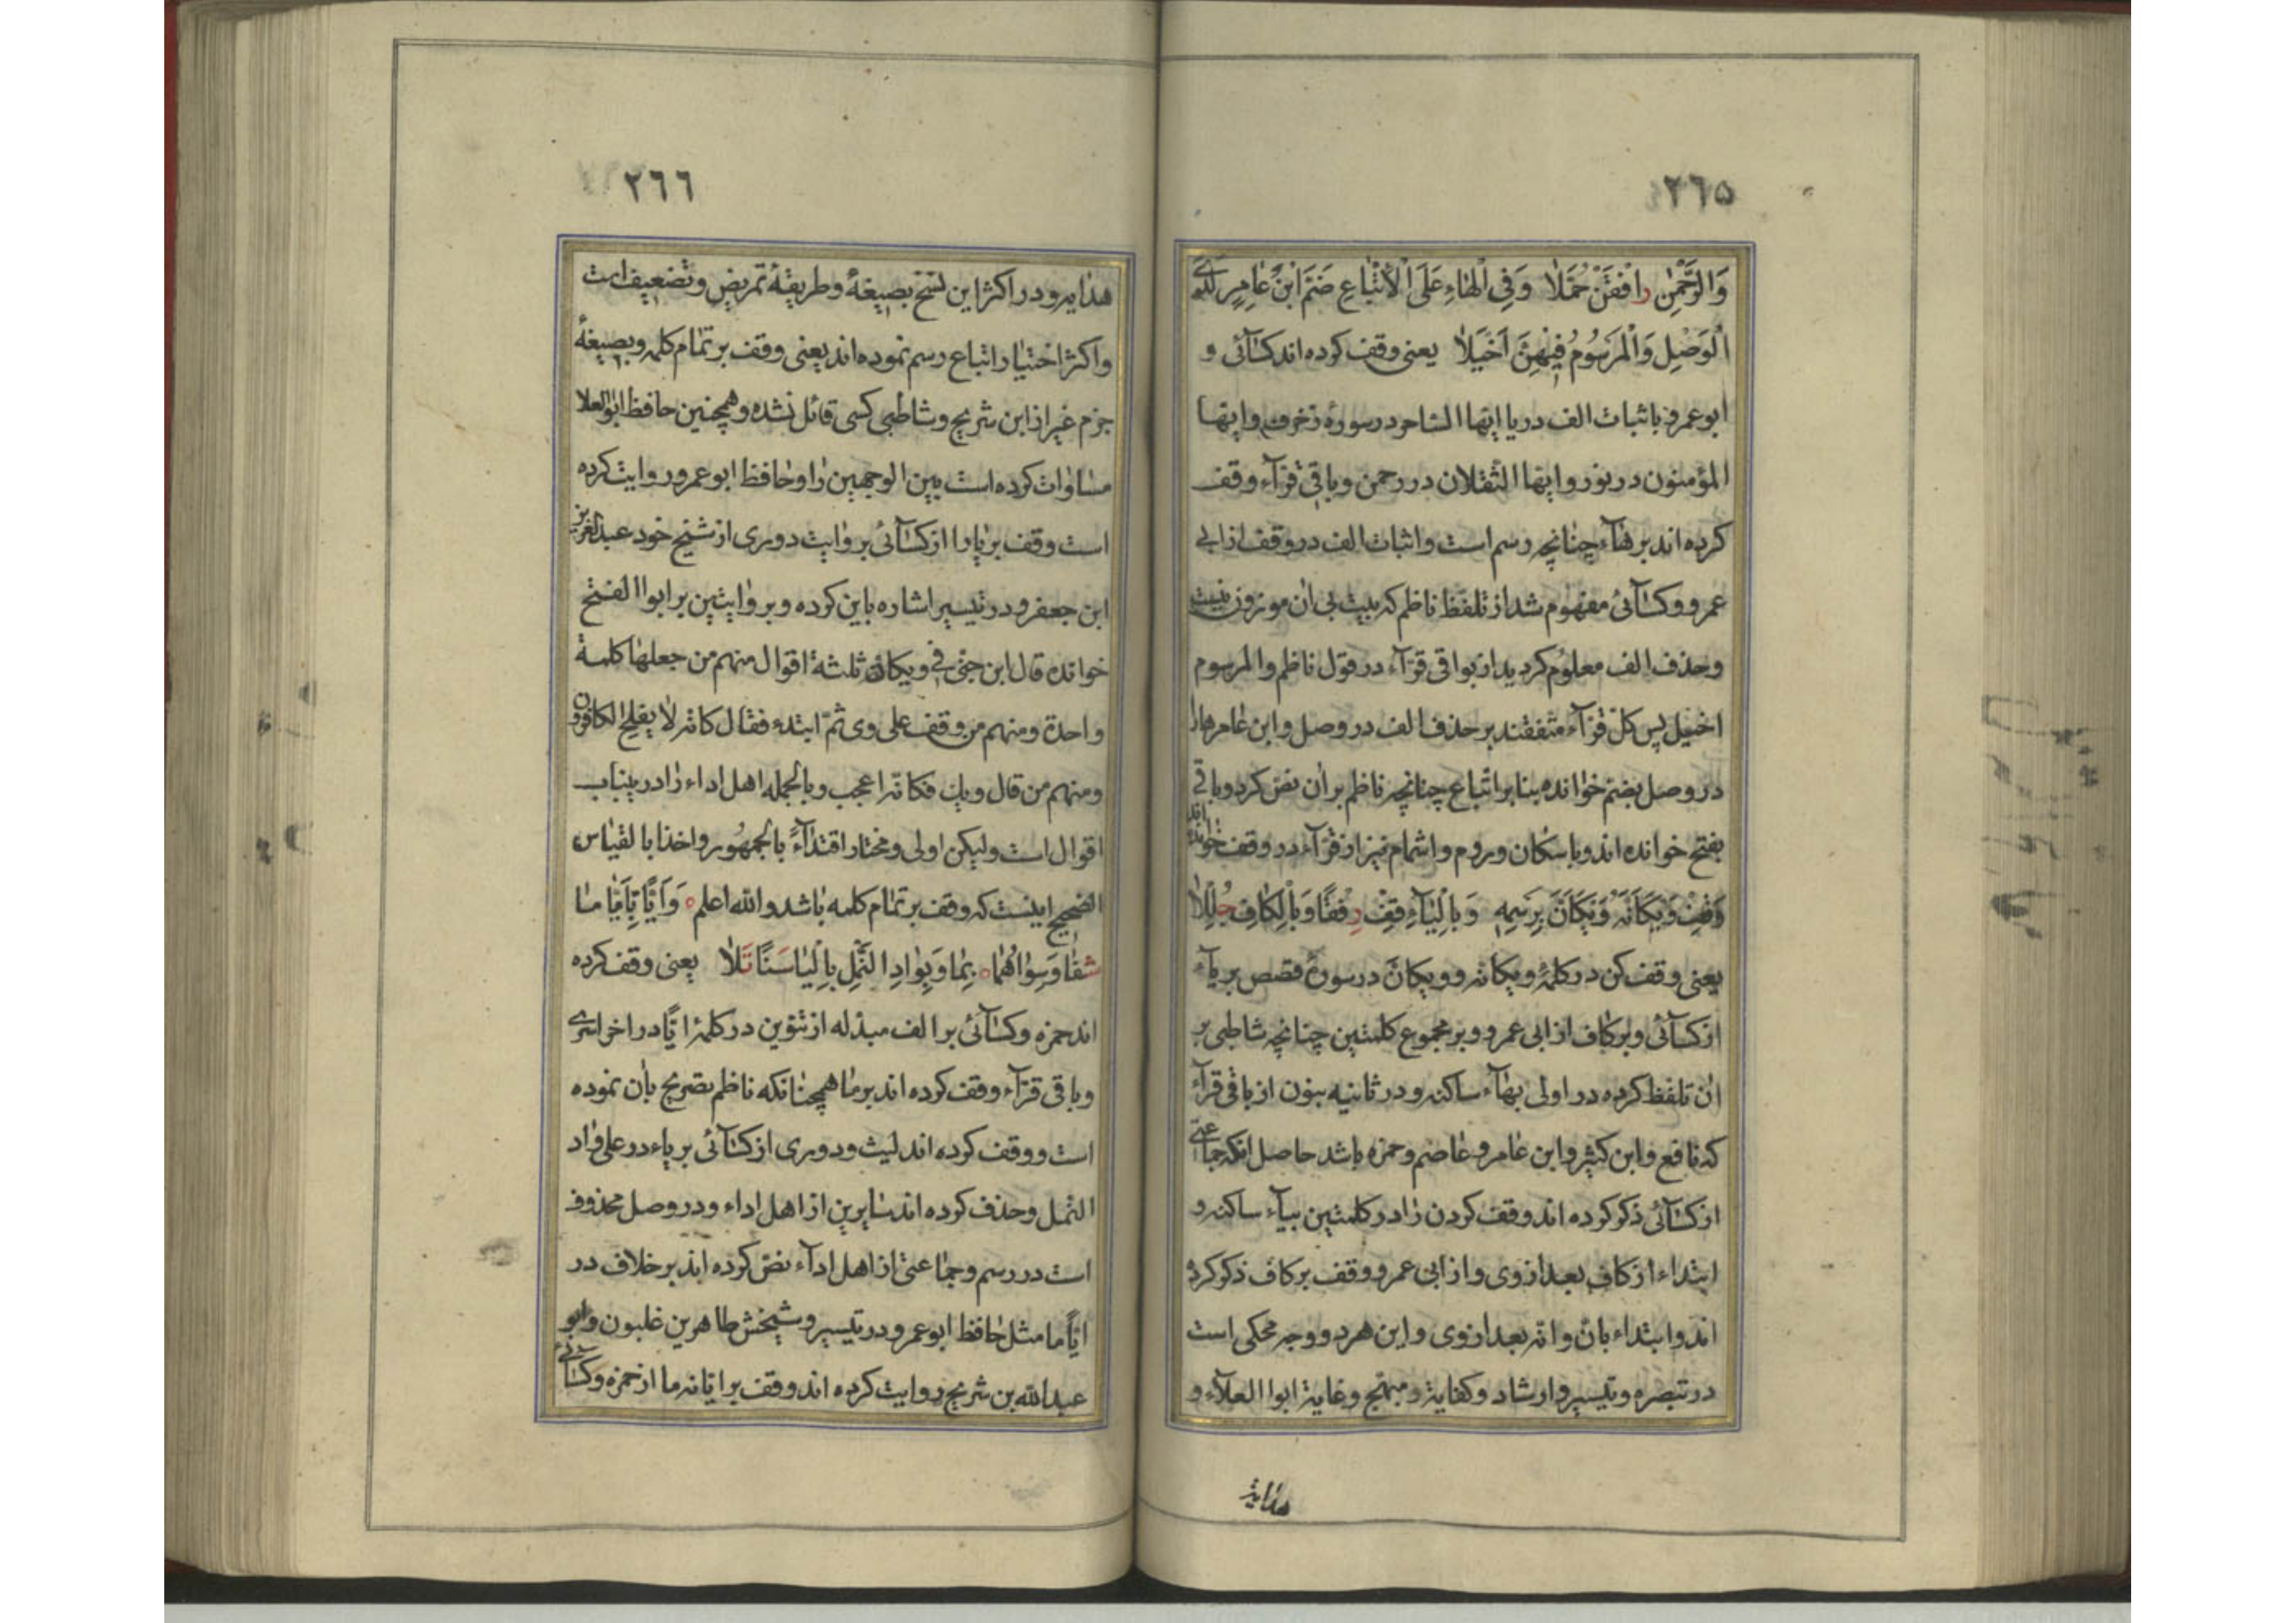 ٢٦٥
وَالرَّحْمٰنِ رَافَقْنَ حُمَّلَا وَفِي الْهَاءِ عَلَى الْاَتْبَاعِ ضَمَّ ابْنُ عَامِرٍ لَدَى
الْوَصْلِ وَالْمَرْسُومُ فِيهِنَّ اَخْيَلَا یعنی وقف کرده اند کسآئی و
ابوعمرو باثبات الف در یا ایها الساحر در سورهٔ زخرف و ایها
المؤمنون در نور و ایها الثقلان در رحمن و باقی قرآء وقف
کرده اند بر هآء چنانچه رسم است و اثبات الف در وقف از ابی
عمرو و کسآئی مفهوم شد از تلفظ ناظم که بیت بی ان موزون نیست
و حذف الف معلوم کردید از بواقی قرآء در قول ناظم والمرسوم
اخیل پس کل قرآء متفقند بر حذف الف در وصل و ابن عامر هارا
در وصل بضم خوانده بنا بر اتباع چنانچه ناظم بر ان نص کرد و باقی
بفتح خوانده اند و باسکان و روم و اشمام نیز از قرآء در وقف خوانده اند
وَقِفْ وَيْكَاَنَّهْ وَيْكَاَنَّ بِرَسْمِهِ وَبِالْيَآءِ قِفْ رِفْقًا وَبِالْكَافِ حُلِّلَا
یعنی وقف کن در کلمهٔ ویکانه و ویکان در سورهٔ قصص بر یآء
از کسآئی و بر کاف از ابی عمرو و بر مجموع کلمتین چنانچه شاطبی بر
ان تلفظ کرده در اولی بهآء ساکنه و در ثانیه بنون از باقی قرآء
که نافع و ابن کثیر و ابن عامر و عاصم و حمزه باشد حاصل انکه جماعتی
از کسآئی ذکر کرده اند وقف کردن را در کلمتین بیآء ساکنه و
ابتداء از کاف بعد از وی و از ابی عمرو وقف بر کاف ذکر کرده
اند و ابتداء بان و انه بعد از وی و این هر دو وجه محکی است
در تبصره و تیسیر و ارشاد و کفایة و مبهج و غایة ابوا العلآء و
هدایة
٢٦٦
هدایه و در اکثر این نسخ بصیغهٔ و طریقهٔ تمریض و تضعیف است
و اکثر اختیار اتباع رسم نموده اند یعنی وقف بر تمام کلمه و بصیغهٔ
جزم غیر از ابن شریح و شاطبی کسی قائل نشده و همچنین حافظ ابوالعلا
مساوات کرده است بین الوجهین را و حافظ ابوعمرو روایت کرده
است وقف بر یا را از کسآئی بروایت دوری از شیخ خود عبدالعزیز
ابن جعفر و در تیسیر اشاره باین کرده و بروایتین بر ابوا الفتح
خوانده قال ابن جنی فی ویکان ثلثة اقوال منهم من جعلها کلمة
واحدة و منهم من وقف علی وی ثم ابتدء فقال کانه لا یفلح الکافرون
و منهم من قال ویك فکانه اعجب و بالجمله اهل اداء را در ینباب
اقوال است ولیکن اولی و مختار اقتدآءً بالجمهور و اخذا بالقیاس
الصحیح اینست که وقف بر تمام کلمه باشد والله اعلم وَاَيًّا بِاَيًّا مَا
شَفَا وَسِوَاهُمَا بِمَا وَبِوَادِ النَّمْلِ بِالْيَا سَنًا تَلَا یعنی وقف کرده
اند حمزه و کسآئی بر الف مبدله از تنوین در کلمهٔ ایًا در اخر اسری
و باقی قرآء وقف کرده اند بر ما همچنانکه ناظم تصریح بان نموده
است و وقف کرده اند لیث و دوری از کسآئی بر یاء در علی واد
النمل و حذف کرده اند سایرین از اهل اداء و در وصل محذوف
است در رسم و جماعتی از اهل ادآء نص کرده اند بر خلاف در
ایًا ما مثل حافظ ابوعمرو در تیسیر و شیخش طاهر بن غلبون و ابو
عبدالله بن شریح روایت کرده اند وقف بر ایا نه ما از حمزه و کسآئی